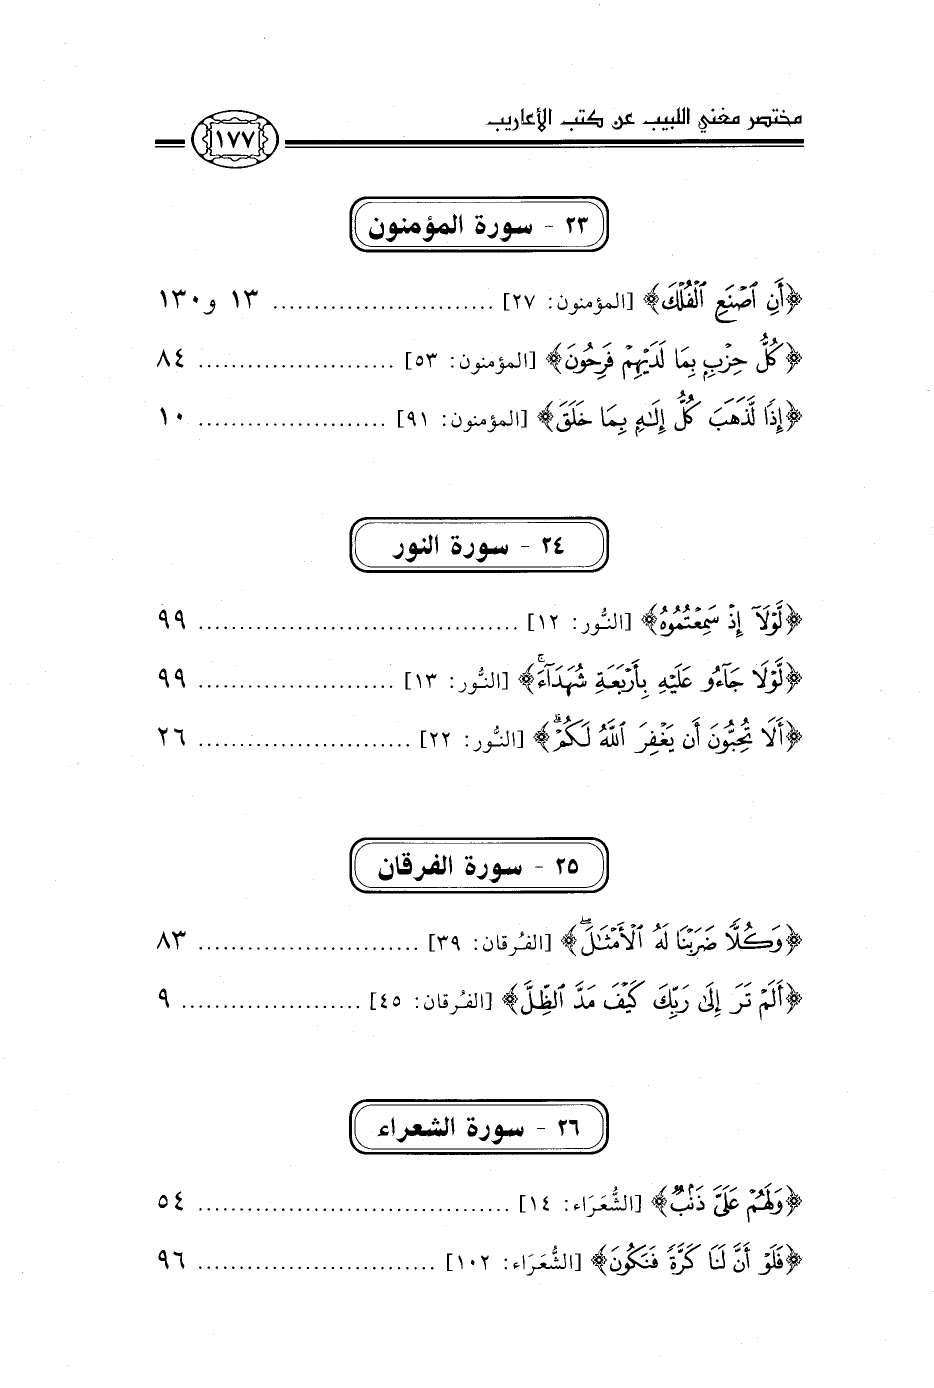 مختصر مغني اللبيب عن كتب الأعاريب
١٧٧
٢٣ - سورة المؤمنون
﴿أَنِ ٱصْنَعِ ٱلْفُلْكَ﴾ [المؤمنون: ٢٧] ........................... ١٣ و١٣٠
﴿كُلُّ حِزْبٍ بِمَا لَدَيْهِمْ فَرِحُونَ﴾ [المؤمنون: ٥٣] ........................ ٨٤
﴿إِذًا لَّذَهَبَ كُلُّ إِلَٰهٍ بِمَا خَلَقَ﴾ [المؤمنون: ٩١] ....................... ١٠
٢٤ - سورة النور
﴿لَّوْلَآ إِذْ سَمِعْتُمُوهُ﴾ [النُّور: ١٢] ....................................... ٩٩
﴿لَّوْلَا جَآءُو عَلَيْهِ بِأَرْبَعَةِ شُهَدَآءَ ۚ﴾ [النُّور: ١٣] ........................ ٩٩
﴿أَلَا تُحِبُّونَ أَن يَغْفِرَ ٱللَّهُ لَكُمْ ۗ﴾ [النُّور: ٢٢] .......................... ٢٦
٢٥ - سورة الفرقان
﴿وَكُلًّا ضَرَبْنَا لَهُ ٱلْأَمْثَٰلَ ۖ﴾ [الفُرقان: ٣٩] ........................... ٨٣
﴿أَلَمْ تَرَ إِلَىٰ رَبِّكَ كَيْفَ مَدَّ ٱلظِّلَّ﴾ [الفُرقان: ٤٥] ...................... ٩
٢٦ - سورة الشعراء
﴿وَلَهُمْ عَلَىَّ ذَنۢبٌ﴾ [الشُّعَرَاء: ١٤] ...................................... ٥٤
﴿فَلَوْ أَنَّ لَنَا كَرَّةً فَنَكُونَ﴾ [الشُّعَرَاء: ١٠٢] ............................. ٩٦